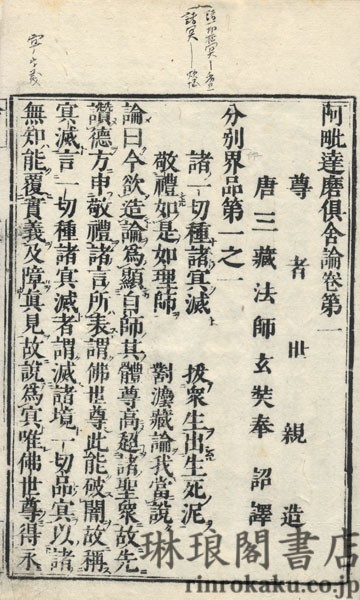 阿毗達磨俱舍論卷第一
尊者世親造
唐三藏法師玄奘奉 詔譯
分別界品第一之一
諸一切種諸冥滅 拔衆生出生死泥
敬禮如是如理師 對法藏論我當說
論曰今欲造論爲顯自師其體尊高超諸聖衆故先
讚德方申敬禮諸言所表謂佛世尊此能破闇故稱
冥滅言一切種諸冥滅者謂滅諸境一切品冥以諸
無知能覆實義及障眞見故說爲冥唯佛世尊得永
琳琅閣書店
rinrokaku.co.jp